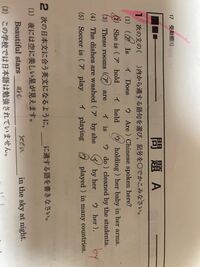 17 受動態(1)
問題 A
1 次の文の( )内から適する語句を選び，記号を○でかこみなさい。
(1) (ア Is イ Does ウ Are) Chinese spoken here?
(2) She is (ア hold イ held ウ holding) her baby in her arms.
(3) These rooms (ア are イ is ウ do) cleaned by the students.
(4) The dishes are washed (ア by she イ by her ウ her).
by
(5) Soccer is (ア play イ playing ウ played) in many countries.
2 次の日本文に合う英文になるように， に適する語を書きなさい。
(1) 夜には空に美しい星が見えます。
Beautiful stars are seen in the sky at night.
(2) この学校では日本語は勉強されていません。